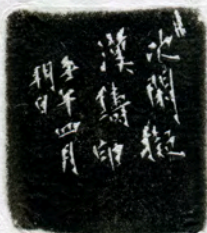 池閑擬
漢鑄印
壬午四月
朔日